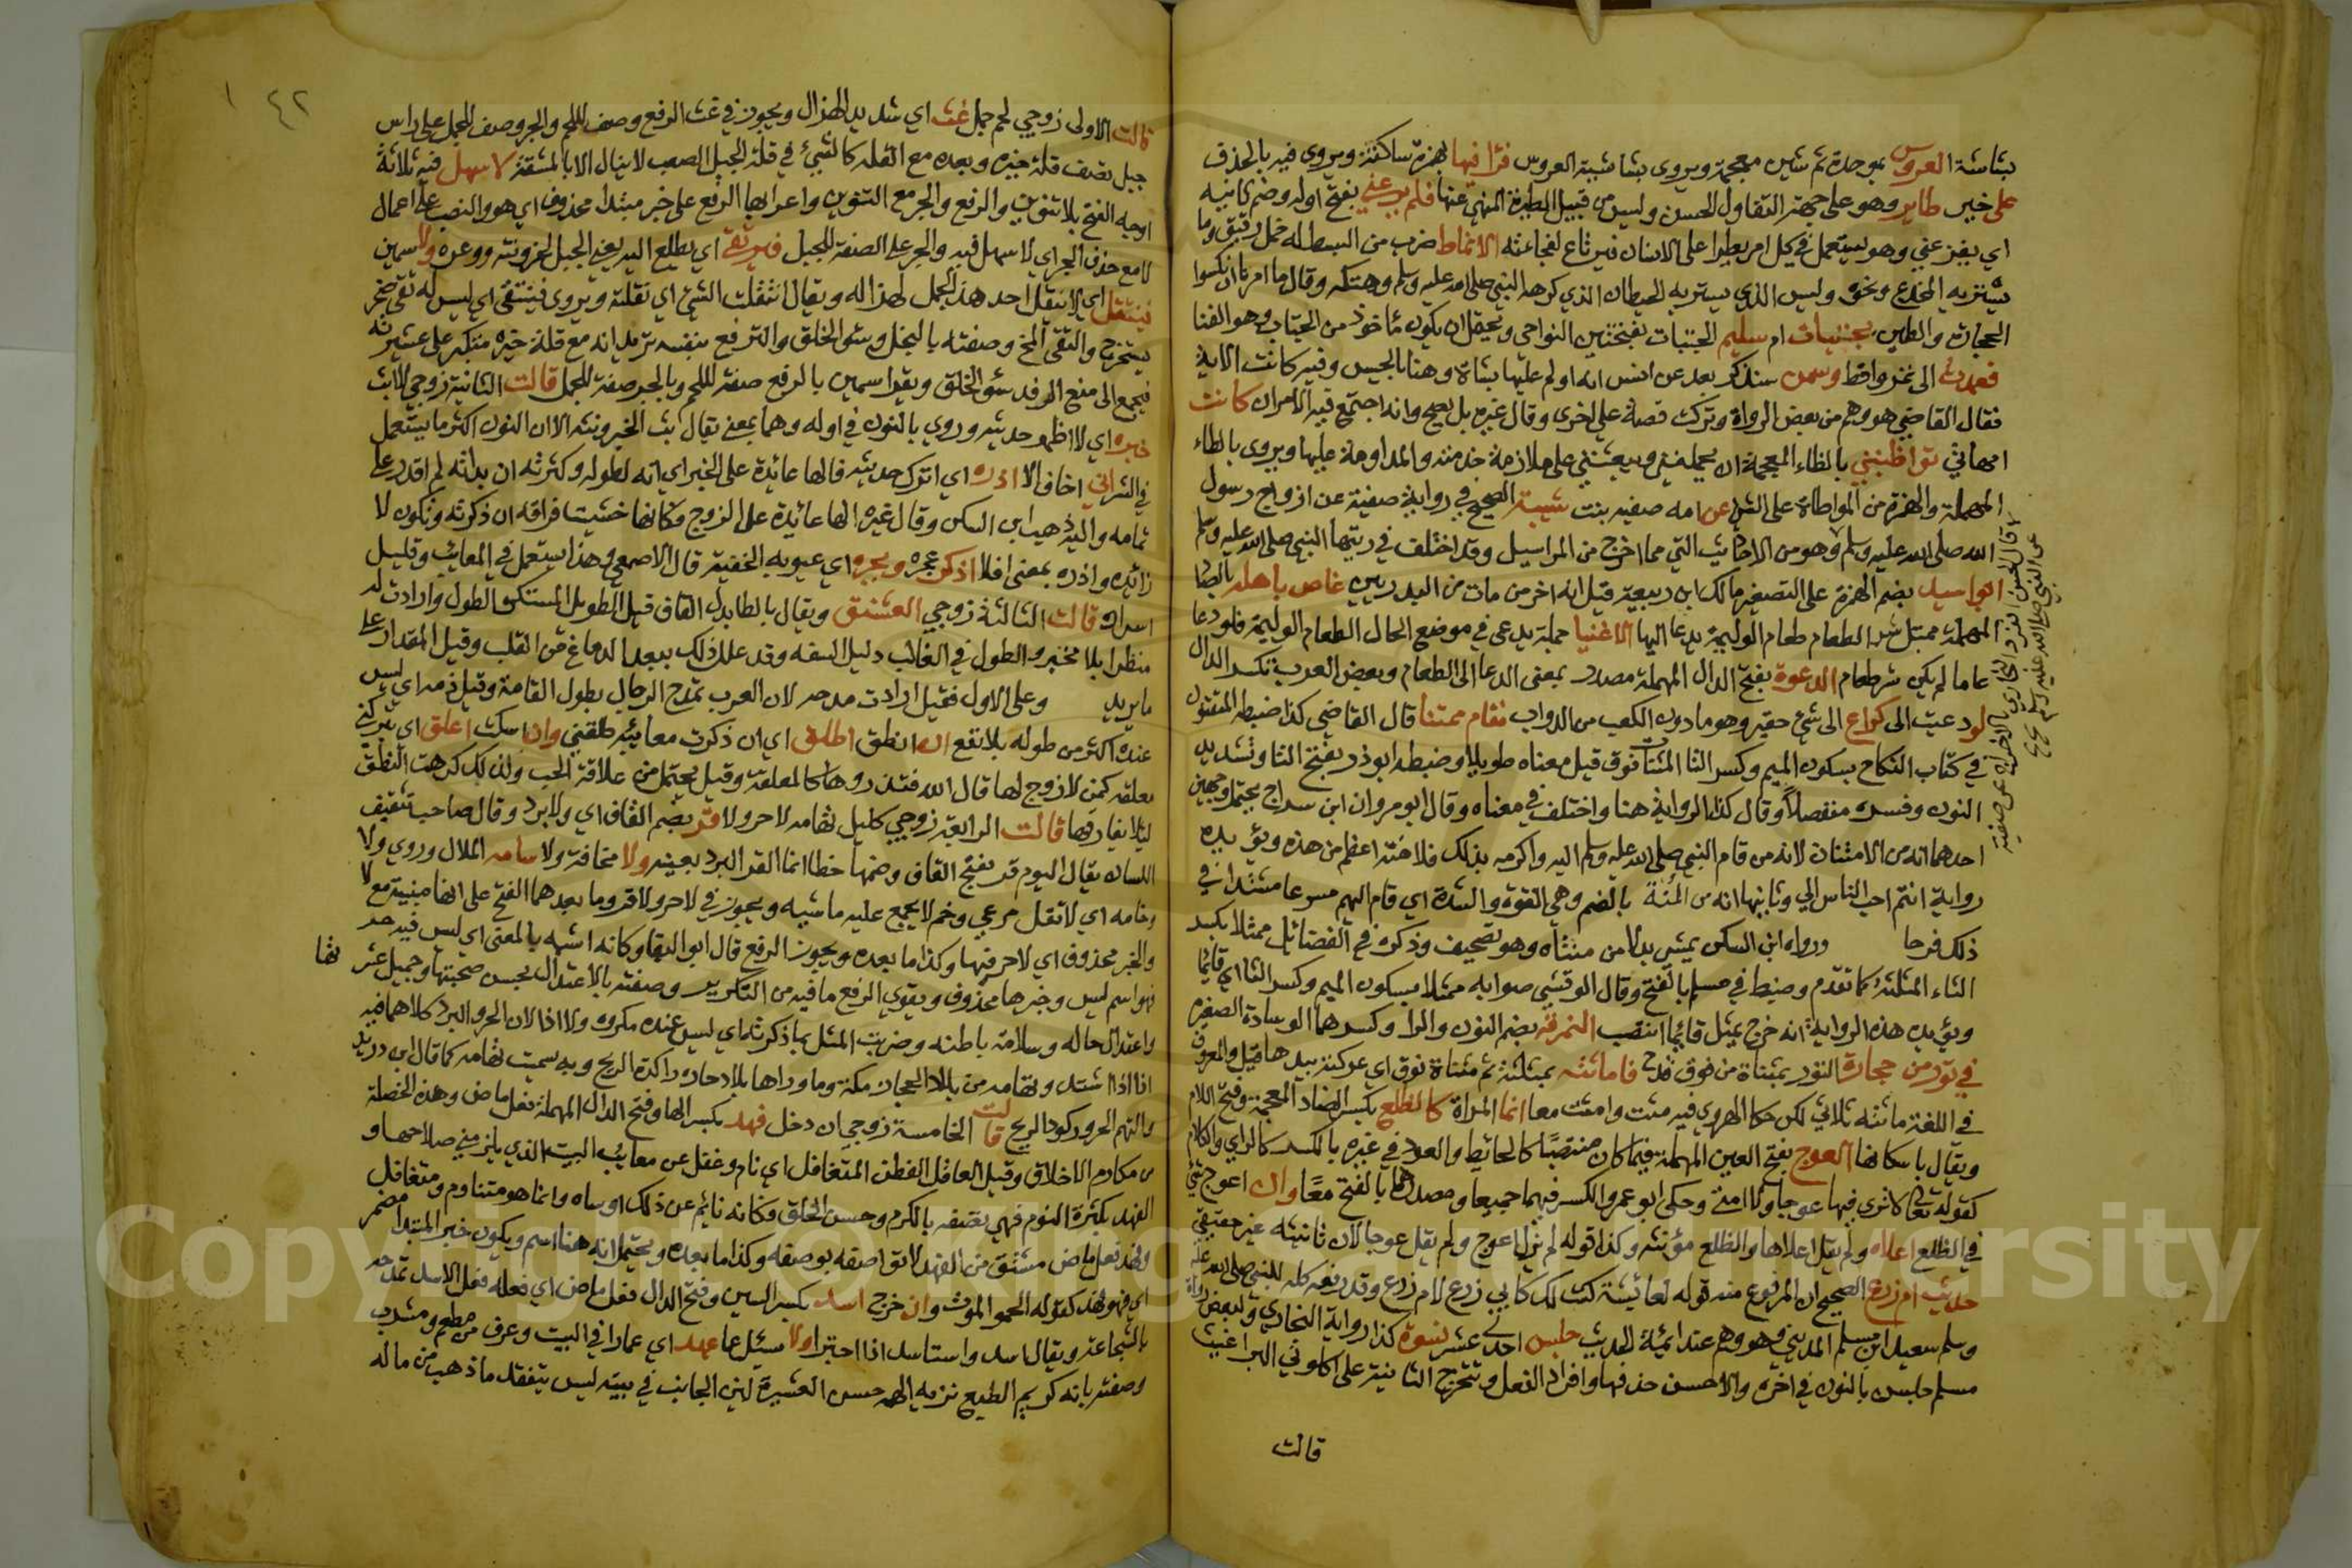 بشاشة العروس بموحدة ثم شين معجمة ويروى بشاشية العروس فرا فيها بهمزة ساكنة ويروى فيه بالحذف
على خير طاير وهو على جهة التفاول الحسن وليس من قبيل الطيرة المنهي عنها فلم يرعني بفتح اوله وضم ثانيه
اي يفزعني وهو يستعمل في كل امر يطرا على الانسان فيرتاع لفجاعته الانماط ضرب من البسط له خمل رقيق وما
يستر به المخدع ونحوه وليس الذي يستر به الحيطان الذي كرهه النبي صلى الله عليه وسلم وهتكه وقال ما امرنا ان نكسوا
الحجارة والطين بجنبات ام سليم الجنبات بفتحتين النواحي ويحتمل ان يكون ماخوذ من الجناب وهو الفنا
فعمدت الى تمر واقط وسمن سنذكر بعد عن انس انه اولم عليها بشاة وهنا بالحيس وفيه كانت الاية
فقال القاضي هو وهم من بعض الرواة وتركب قصة على اخرى وقال غيره بل يصح وانه اجتمع فيه الامران كانت
امهاتي تواظبنني بالظاء المعجمة ان يحملنني ويبعثنني على ملازمة خدمته والمداومة عليها ويروى بالطاء
المهملة والهمزة من المواطاة على الشي عن امه صفيه بنت شيبة الصحيح في رواية صفية عن ازواج رسول
الله صلى الله عليه وسلم وهو من الاحاديث التي مما اخرج من المراسيل وقد اختلف في رؤيتها النبي صلى الله عليه وسلم
ابو اسيد بضم الهمزة على التصغير مالك ابن ربيعة قيل انه اخر من مات من البدريين غاص باهله بالصاد
المهملة ممتلي شر الطعام طعام الوليمة يدعا اليها الاغنيا جملة يدعى في موضع الحال الطعام الوليمة فلو دعا
عاما لم يكن شر طعام الدعوة بفتح الدال المهملة مصدر بمعنى الدعا الى الطعام وبعض العرب تكسر الدال
لو دعيت الى كراع الى شي حقير وهو مادون الكعب من الدواب فقام ممتنا قال القاضي كذا ضبطه المتقنون
في كتاب النكاح بسكون الميم وكسر التا المثناة فوق قيل معناه طويلا وضبطه ابوذر بفتح التا وتشديد
النون وفسره متفضلا وقال كذا الرواية هنا واختلف في معناه وقال ابو مروان ابن سراج يحتمل وجهين
احدهما انه من الامتنان لانه من قام النبي صلى الله عليه وسلم اليه واكرمه بذلك فلا منة اعظم من هذه ويؤيده
رواية انتم احب الناس الي وثانيها انه من المنة بالضم وهي القوة والشدة اي قام اليهم مسرعا مشتدا في
ذلك فرحا ورواه ابن السكن يمشي بدلا من ممتنا وهو تصحيف وذكره في الفضائل ممثلا بكسر
الثاء المثلثة كما تقدم وضبط في مسلم بالفتح وقال الوقشي صوابه ممثلا بسكون الميم وكسر الثا اي قائما
ويؤيده هذه الرواية انه خرج يمثل قائما انتصب النمرقة بضم النون والرا وكسرهما الوسادة الصغيرة
في تور من حجارة التور بمثناة من فوق قدح فاماثته بمثلثة ثم مثناة فوق اي عركته بيدها قيل والمعروف
في اللغة ماثته ثلاثي لكن حكا الهروي فيه مثت وامثت معا انما المراة كالضلع بكسر الضاد المعجمة وفتح اللام
ويقال باسكانها العوج بفتح العين المهملة فيما كان منتصبا كالحائط والعود في غيره بالكسر كالراي والكلام
كقوله تعالى لا ترى فيها عوجا ولا امتى وحكى ابو عمرو الكسر فيهما جميعا ومصدرهما بالفتح معا وان اعوج شي
في الضلع اعلاه ولم يقل اعلاها والضلع مؤنثه وكذا قوله لم يزل اعوج ولم يقل عوجا لان تانيثه غير حقيقي
حديث ام زرع الصحيح ان المرفوع منه قوله لعائيشة كنت لك كابي زرع لام زرع وقد رفعه كله للنبي صلى الله عليه
وسلم سعيد ابن مسلم المديني وهو وهم عند ائمة الحديث جلس احدى عشر نسوة كذا رواية البخاري ولبعض رواة
مسلم جلسن بالنون في اخره والاحسن حذفها وافراد الفعل وتتخرج الثانية على اكلوني البراغيث
قالت
قال الحسن انفرد البخاري بالاخراج عن صفية
عن النبي صلى الله عليه وسلم صح
٤٢
قالت الاولى زوجي لحم جمل غث اي شديد الهزال ويجوز في غث الرفع وصف اللحم والجر وصف للجمل على راس
جبل تصف قلة خيره وبعده مع القلة كالشيء في قلة الجبل الصعب لا ينال الا بالمشقة لا سهل فيه ثلاثة
اوجه الفتح بلا تنوين والرفع والجر مع التنوين واعرابها الرفع على خبر مبتدا محذوف اي هو والنصب على اعمال
لا مع حذف الخبر اي لا سهل فيه والجر على الصفة للجبل فيرتقى اي يطلع اليه يعني الجبل لحزونته ووعره ولا سمين
فينتقل اي لا ينتقل احد هذا الجمل لهزاله ويقال انتقلت الشي اي نقلته ويروى فينتقى اي ليس له نقي
يستخرج والنقي المخ وصفته بالبخل وسوء الخلق والترفع بنفسه تريد انه مع قلة خيره متكبر على عشيرته
فيجمع الى منع الرفد سوء الخلق ويقرا سمين بالرفع صفة للحم وبالجر صفة للجمل قالت الثانية زوجي لا ابث
خبره اي لا اظهر حديثه وروي بالنون في اوله وهما بمعنى يقال بث الخبر ونثه الا ان النون اكثر ما يستعمل
في الشر اني اخاف الا اذره اي اترك حديثه فالها عائدة على الخبر اي انه لطوله وكثرته ان بداته لم اقدر على
تمامه واليه ذهب ابن السكن وقال غيره الها عائدة على الزوج وكانها خشيت فراقه ان ذكرته وتكون لا
زائده واذره بمعنى افلا اذكر عجره وبجره اي عيوبه الخفية قال الاصمعي وهذا يستعمل في المعايب وقليل
اسراره قالت الثالثة زوجي العشنق ويقال بالطا بدل القاف قيل الطويل المستكره الطول وارادت له
منظرا بلا مخبر والطول في الغالب دليل السفه وقد علل ذلك ببعد الدماغ من القلب وقيل المقدار على
مايريد وعلى الاول فقيل ارادت مدحه لان العرب تمدح الرجال بطول القامة وقيل ذمه اي ليس
عنده اكثر من طوله بلا نفع ان انطق اطلق اي ان ذكرت معائبه طلقني وان اسكت اعلق اي يتركني
معلقه كمن لا زوج لها قال الله فتذروها كالمعلقة وقيل يحتمل من علاقة الحب ولذلك كرهت النطق
ليلا يفارقها قالت الرابعة زوجي كليل تهامه لا حر ولا قر بضم القاف اي ولا برد وقال صاحب تثقيف
اللسان يقال اليوم قر بفتح القاف وضمها خطا انما القر البرد بعينه ولا مخافة ولا سامه الملال وروي ولا
وخامه اي لا ثقل مرعي وخم لا يجمع عليه ماشيه ويجوز في لا حر ولا قر وما بعدهما الفتح على انها مبنية مع لا
والخبر محذوف اي لا حر فيها وكذا ما بعده ويجوز الرفع قال ابو البقا وكانه اشبه بالمعنى اي ليس فيه حر
فهو اسم ليس وخبرها محذوف ويقوي الرفع ما فيه من التكرير وصفته بالاعتدال بحسن صحبتها وجميل عشرتها
واعتدال حاله وسلامة باطنه وضربت المثل بما ذكرته اي ليس عنده مكروه ولا اذا لان الحر والبرد كلاهما فيه
اذا اذا اشتد وتهامه من بلاد الحجاز مكة وما وراها بلاد حاره راكدة الريح وبه سميت تهامه كما قال ابن دريد
والتهم الحر وركود الريح قالت الخامسة زوجي ان دخل فهد بكسر الها وفتح الدال المهملة فعل ماض وهذه الخصلة
من مكارم الاخلاق وقيل العاقل الفطن المتغافل اي نام وغفل عن معائب البيت الذي يلزمني صلاحها و
الفهد بكثرة النوم فهي تصفه بالكرم وحسن الخلق فكانه نائم عن ذلك او ساه وانما هو متناوم ومتغافل
وفهد فعل ماض مشتق من الفهد لانها تصفه بوصفه وكذا ما بعده ويحتمل انه هنا اسم ويكون خبر المبتدا مضمر
اي فهو فهد كقوله الحمو الموت وان خرج اسد بكسر السين وفتح الدال فعل ماض اي فعله فعل الاسد تمدحه
بالشجاعة ويقال اسد واستاسد اذا اجترا ولا يسئل عما عهد اي عما را في البيت وعرف من مطعم ومشرب
وصفته بانه كريم الطبع نزيه الهمه حسن العشيرة لين الجانب في بيته ليس يتفقد ما ذهب من ماله
Copyright © King Saud University